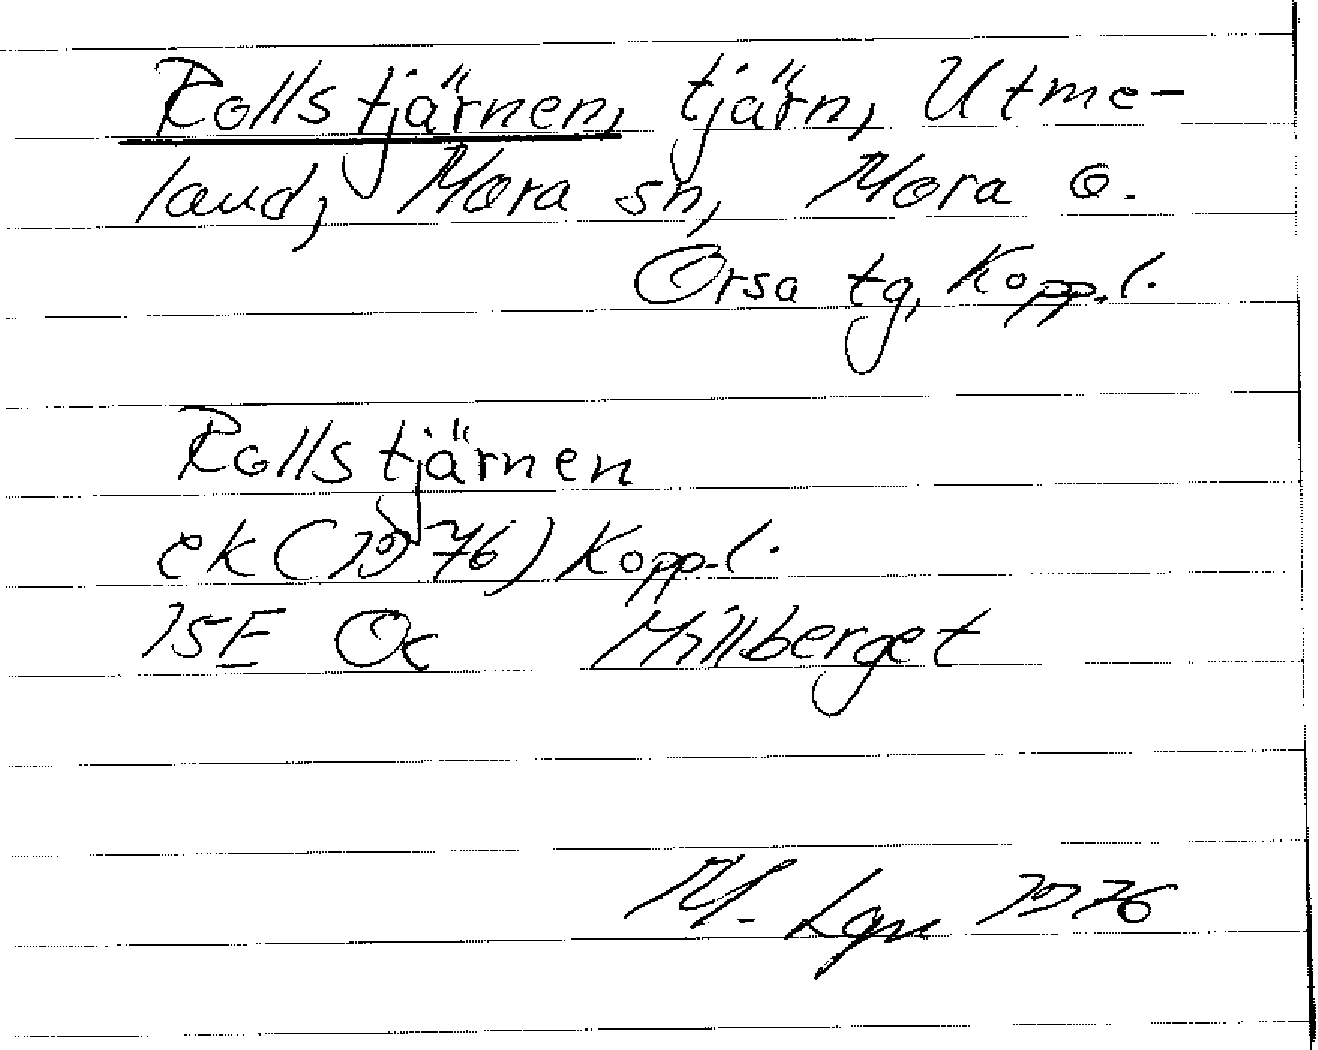 Rollstjärnen, tjärn, Utme-
land, Mora sn, Mora o.
Orsa tg, Kopp.l.
Rollstjärnen
ek (1976) Kopp.l.
15E Oc Millberget
M. 1976